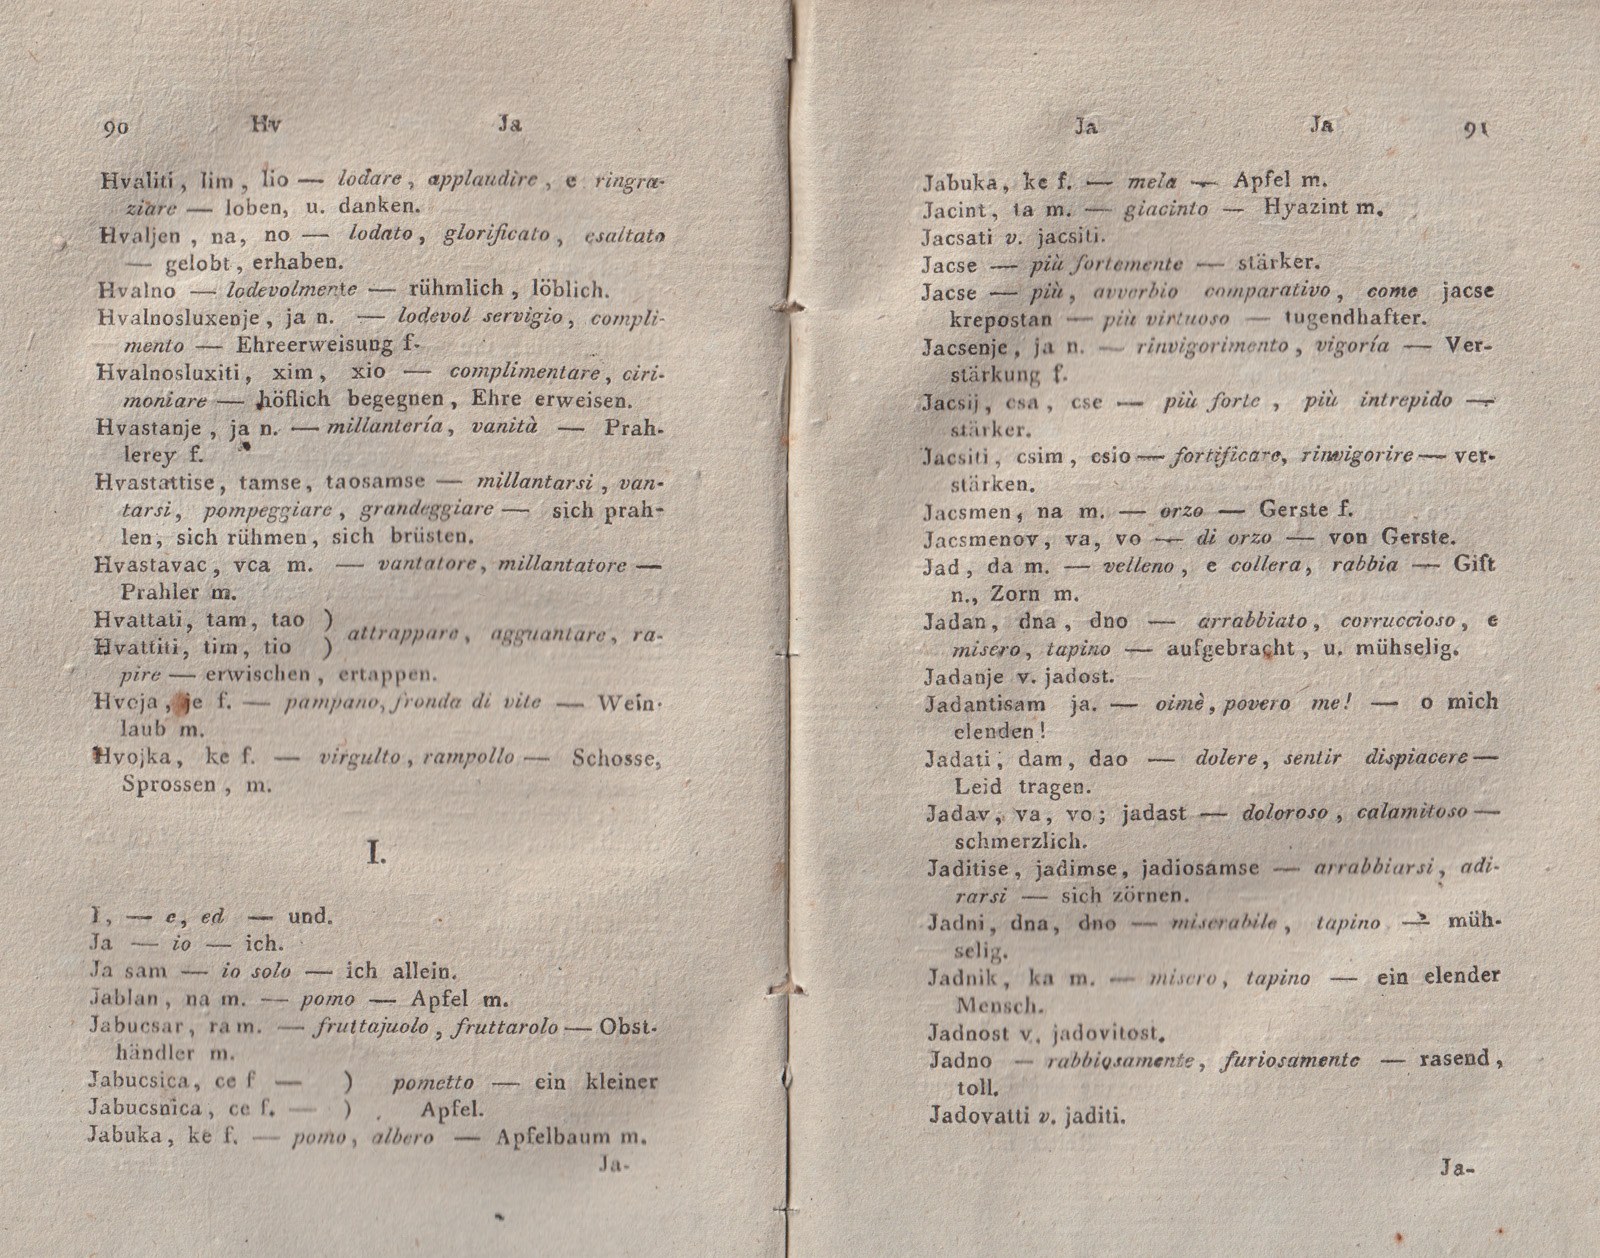 90 Hv Ja
Hvaliti, lim, lio — lodare, applaudire, e ringra-
ziare — loben, u. danken.
Hvaljen, na, no — lodato, glorificato, esaltato
— gelobt, erhaben.
Hvalno — lodevolmente — rühmlich, löblich.
Hvalnosluxenje, ja n. — lodevol servigio, compli-
mento — Ehreerweisung f.
Hvalnosluxiti, xim, xio — complimentare, ciri-
moniare — höflich begegnen, Ehre erweisen.
Hvastanje, ja n. — millantería, vanità — Prah-
lerey f.
Hvastattise, tamse, taosamse — millantarsi, van-
tarsi, pompeggiare, grandeggiare — sich prah-
len, sich rühmen, sich brüsten.
Hvastavac, vca m. — vantatore, millantatore —
Prahler m.
Hvattati, tam, tao )
Hvattiti, tim, tio ) attrappare, agguantare, ra-
pire — erwischen, ertappen.
Hvoja, je f. — pampano, fronda di vite — Wein-
laub m.
Hvojka, ke f. — virgulto, rampollo — Schosse,
Sprossen, m.
I.
I, — e, ed — und.
Ja — io — ich.
Ja sam — io solo — ich allein.
Jablan, na m. — pomo — Apfel m.
Jabucsar, ra m. — fruttajuolo, fruttarolo — Obst-
händler m.
Jabucsica, ce f — ) pometto — ein kleiner
Jabucsnica, ce f. — ) Apfel.
Jabuka, ke f. — pomo, albero — Apfelbaum m.
Ja-
Ja Ja 91
Jabuka, ke f. — mela — Apfel m.
Jacint, ta m. — giacinto — Hyazint m.
Jacsati v. jacsiti.
Jacse — più fortemente — stärker.
Jacse — più, avverbio comparativo, come jacse
krepostan — più virtuoso — tugendhafter.
Jacsenje, ja n. — rinvigorimento, vigoría — Ver-
stärkung f.
Jacsij, csa, cse — più forte, più intrepido —
stärker.
Jacsiti, csim, csio — fortificare, rinvigorire — ver-
stärken.
Jacsmen, na m. — orzo — Gerste f.
Jacsmenov, va, vo — di orzo — von Gerste.
Jad, da m. — velleno, e collera, rabbia — Gift
n., Zorn m.
Jadan, dna, dno — arrabbiato, corruccioso, e
misero, tapino — aufgebracht, u. mühselig.
Jadanje v. jadost.
Jadantisam ja. — oimè, povero me! — o mich
elenden!
Jadati, dam, dao — dolere, sentir dispiacere —
Leid tragen.
Jadav, va, vo; jadast — doloroso, calamitoso —
schmerzlich.
Jaditise, jadimse, jadiosamse — arrabbiarsi, adi-
rarsi — sich zörnen.
Jadni, dna, dno — miserabile, tapino — müh-
selig.
Jadnik, ka m. — misero, tapino — ein elender
Mensch.
Jadnost v. jadovitost.
Jadno — rabbiosamente, furiosamente — rasend,
toll.
Jadovatti v. jaditi.
Ja-